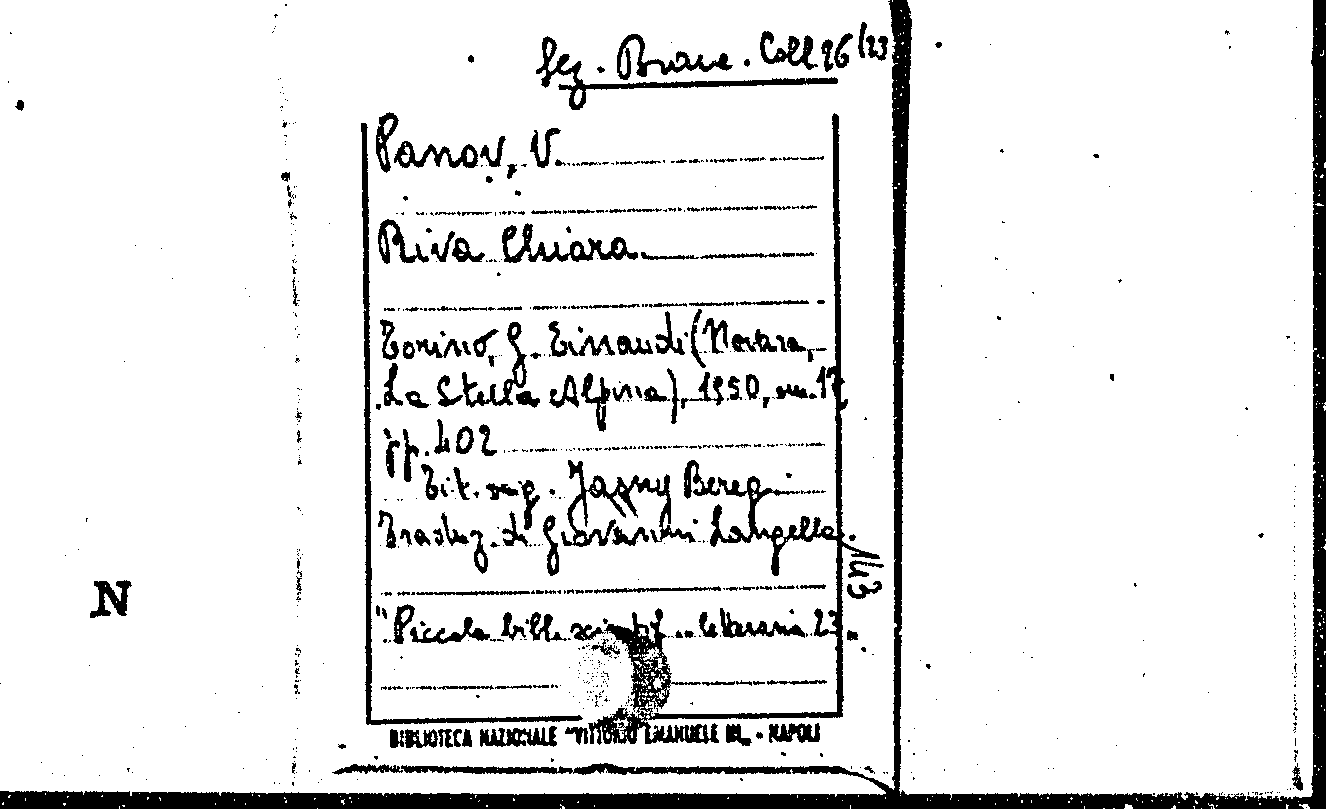 Sez. Brane. Coll 26/23
Panov, V.
Riva Chiara.
Torino, G. Einaudi (Mortara,
La Stella Alpina), 1950, 17,
pp. 402
Tit. orig. Jasny Bereg.
Traduz. di Giovanni Langella.
143
"Piccola bibl. scientif.. letteraria 23„
N
BIBLIOTECA NAZIONALE "VITTORIO EMANUELE III„ - NAPOLI